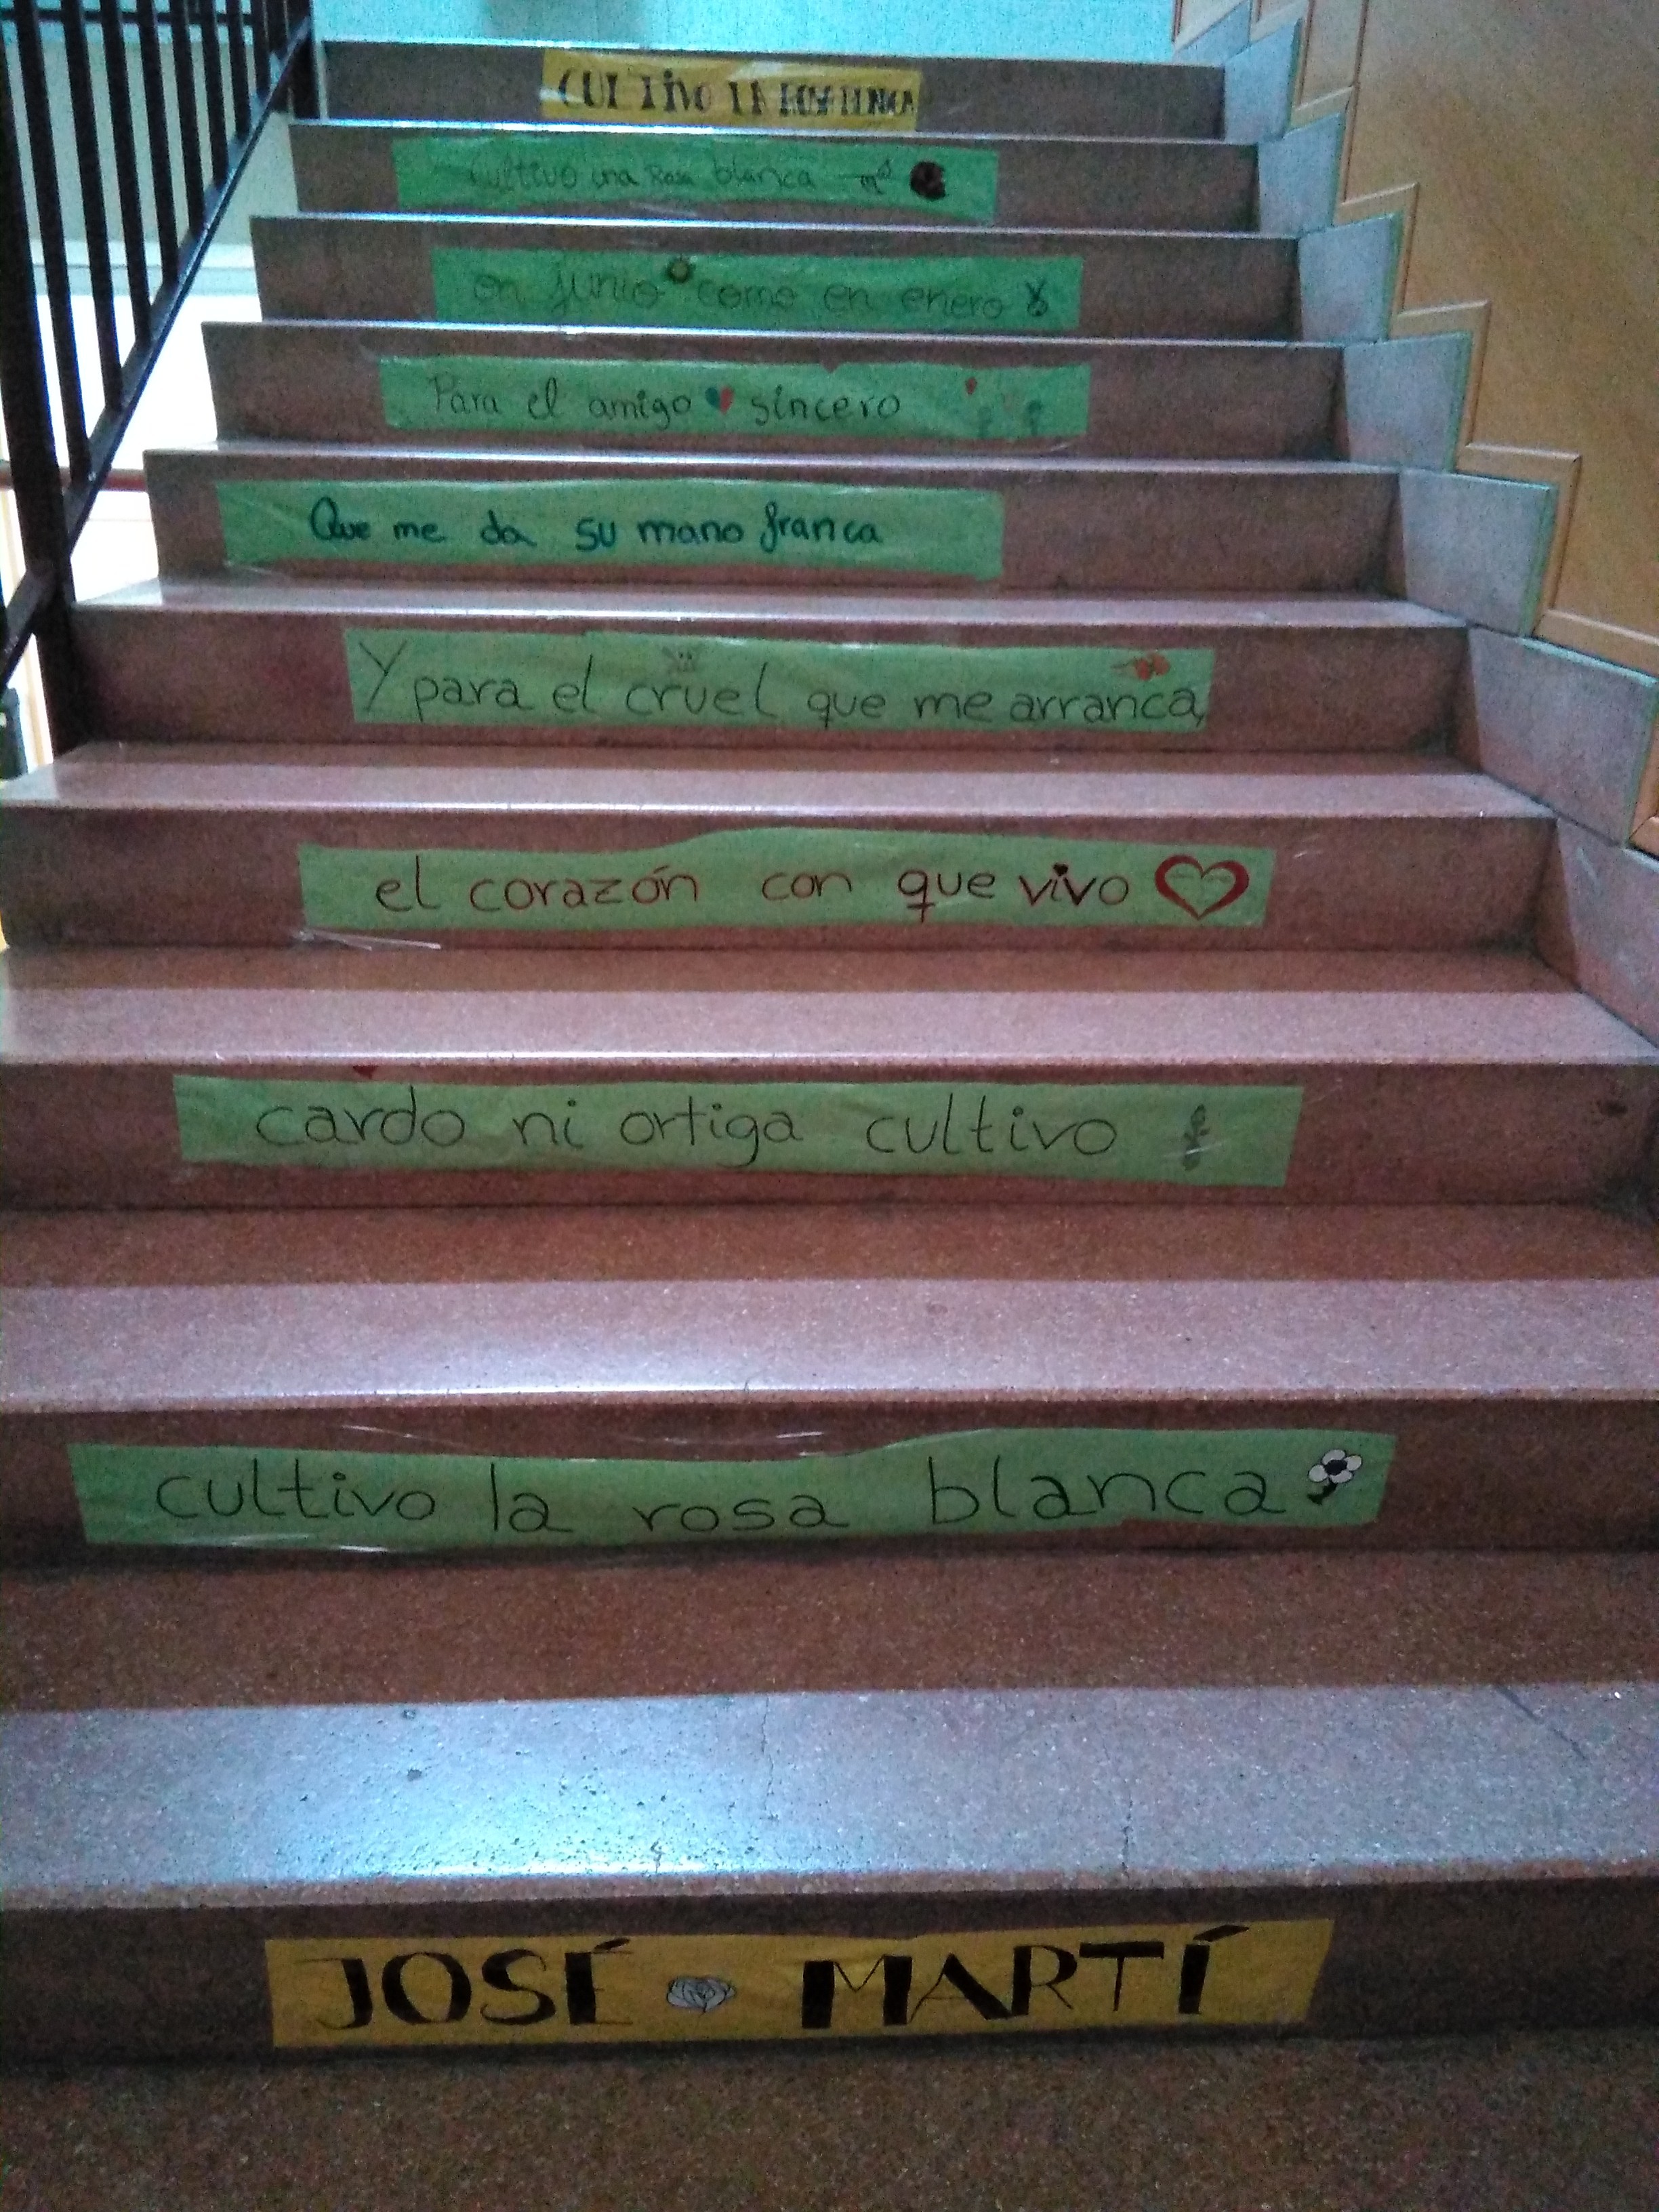 CULTIVO LA ROSA BLANCA
Cultivo una Rosa blanca
en junio como en enero
Para el amigo sincero
Que me da su mano franca
Y para el cruel que me arranca,
el corazón con que vivo
cardo ni ortiga cultivo
cultivo la rosa blanca
JOSÉ MARTÍ